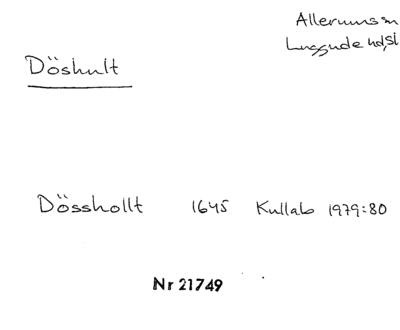 Allerums sn
Luggude hd, Sk
Döshult
Dösshollt 1645 Kullab 1979:80
Nr 21749